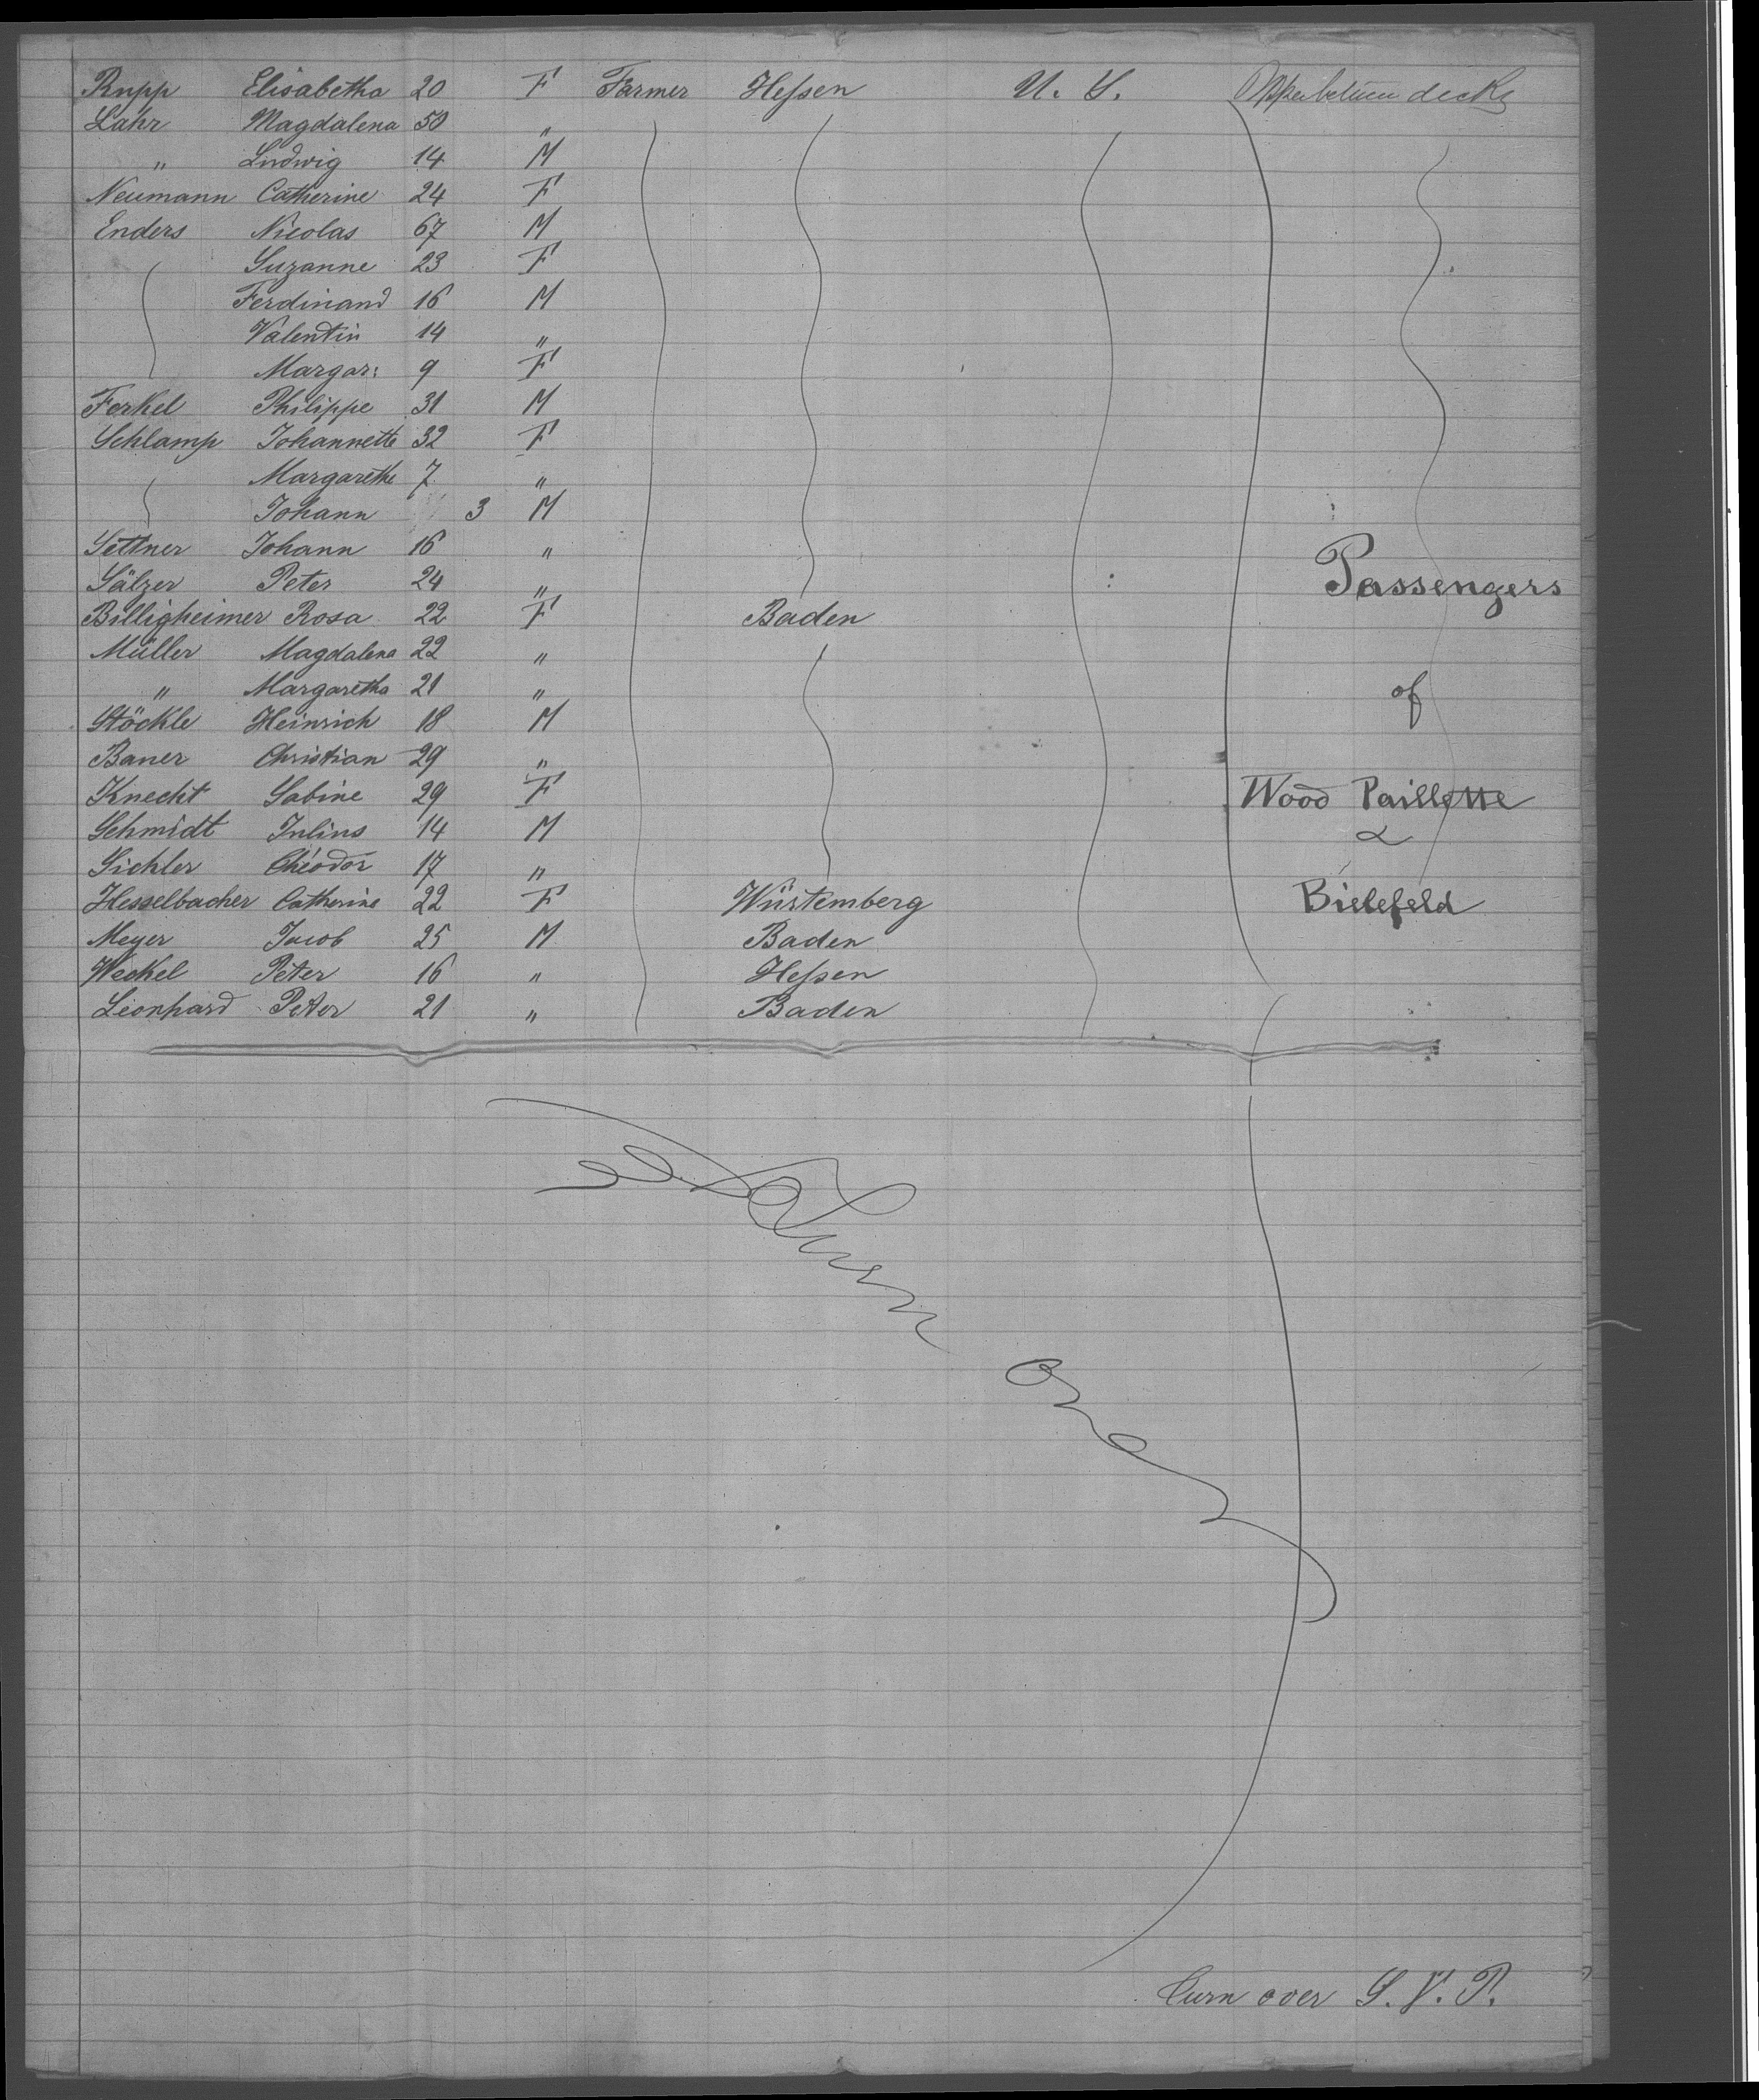 Rupp Elisabetha 20 F Farmer Hessen U. S. Upper betwen decks
Lahr Magdalena 50 "
" Ludwig 14 M
Neumann Catherine 24 F
Enders Nicolas 67 M
Suzanne 23 F
Ferdinand 16 M
Valentin 14 "
Margar: 9 F
Ferkel Philippe 31 M
Schlamp Johannette 32 F
Margarethe 7 "
Johann 3 M
Settner Johann 16 "
Sälzer Peter 24 " Passengers
Billigheimer Rosa 22 F Baden
Müller Magdalena 22 "
" Margaretha 21 " of
Stöckle Heinrich 18 M
Baner Christian 29 "
Knecht Sabine 29 F Wood Paillette
Schmidt Julius 14 M &
Sichler Théodor 17 "
Hesselbacher Catherine 22 F Würtemberg Bielefeld
Meyer Jacob 25 M Baden
Weckel Peter 16 " Hessen
Leonhard Peter 21 " Baden
Turn over
Turn over S. V. P.